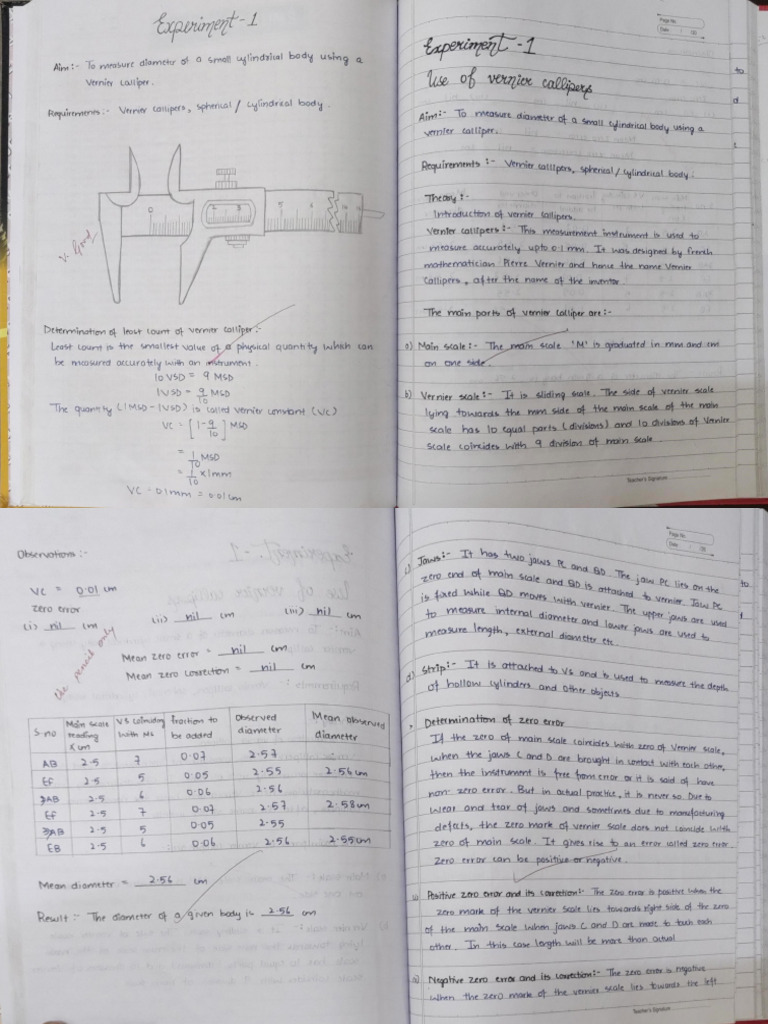 Experiment-1
Aim:- To measure diameter of a small cylindrical body using a
Vernier calliper.
Requirements:- Vernier callipers, spherical / cylindrical body.
V. Good
Determination of least count of vernier calliper:-
Least count is the smallest value of a physical quantity which can
be measured accurately with an instrument.
10 VSD = 9 MSD
1 VSD = 9/10 MSD
The quantity (1MSD - 1VSD) is called vernier constant (VC)
VC = [1 - 9/10] MSD
= 1/10 MSD
= 1/10 x 1mm
VC - 0.1mm = 0.01cm
Page No.
Date
Experiment -1
Use of vernier callipers
Aim:- To measure diameter of a small cylindrical body using a
vernier calliper.
Requirements :- Vernier calllipers, spherical / cylindrical body.
Theory:-
Introduction of vernier callipers.
Vernier callipers :- This measurement instrument is used to
measure accurately upto 0.1 mm. It was designed by french
mathematician Pierre Vernier and hence the name Vernier
Callipers, after the name of the inventor.
The main parts of vernier calliper are:-
a) Main scale:- The main scale 'M' is graduated in mm and cm
on one side.
b) Vernier scale:- It is sliding scale. The side of vernier scale
lying towards the mm side of the main scale of the main
scale has 10 equal parts (divisions) and 10 divisions of Vernier
scale coincides with 9 division of main scale.
Teacher's Signature
Observations :-
VC = 0.01 cm
zero error
(i) nil cm (ii) nil cm (iii) nil cm
Use pencil only
Mean zero error = nil cm
Mean zero correction = nil cm
S no Main scale reading X cm VS Coinciding with MS fraction to be added Observed diameter Mean observed diameter
AB 2.5 7 0.07 2.57
EF 2.5 5 0.05 2.55 2.56 cm
2AB 2.5 6 0.06 2.56
EF 2.5 7 0.07 2.57 2.58 cm
3AB 2.5 5 0.05 2.55
EB 2.5 6 0.06 2.56 2.55 cm
Mean diameter = 2.56 cm
Result :- The diameter of a given body is 2.56 cm
Page No.
Date
c) Jaws:- It has two jaws PC and QD. The jaw PC lies on the
zero end of main scale and QD is attached to vernier. Jaw PC
is fixed while QD moves with vernier. The upper jaws are used
to measure internal diameter and lower jaws are used to
measure length, external diameter etc.
d) Strip:- It is attached to VS and is used to measure the depth
of hollow cylinders and other objects
Determination of zero error
If the zero of main scale coincides with zero of Vernier scale,
when the jaws C and D are brought in contact with each other,
then the instrument is free from error or it is said of have
non-zero error. But in actual practice, it is never so. Due to
wear and tear of jaws and sometimes due to manufacturing
defects, the zero mark of vernier scale does not coincide with
zero of main scale. It gives rise to an error called zero error.
Zero error can be positive or negative.
Positive zero error and its correction:- The zero error is positive when the
zero mark of the vernier scale lies towards right side of the zero
of the main scale when jaws C and D are made to touch each
other. In this case length will be more than actual
Negative zero error and its correction:- The zero error is negative
when the zero mark of the vernier scale lies towards the left
Teacher's Signature